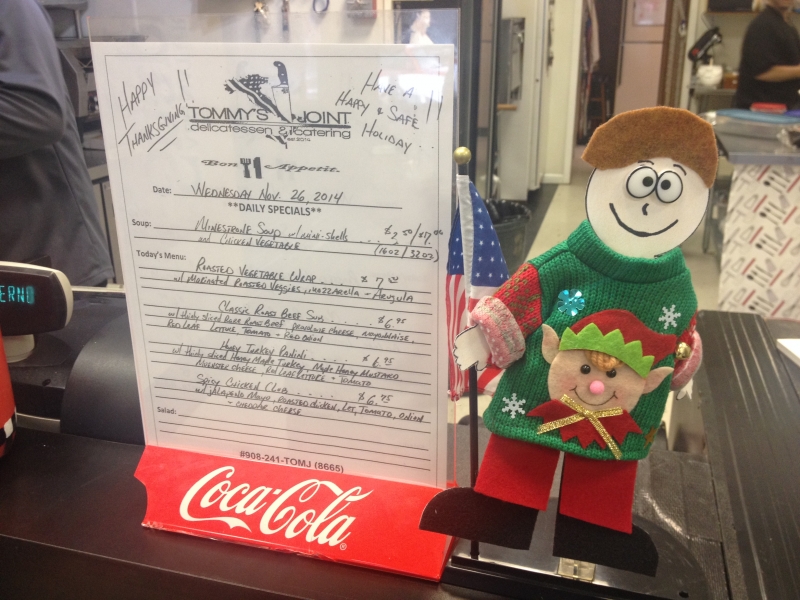 HAPPY THANKSGIVING!!
HAVE A HAPPY & SAFE HOLIDAY...!!
TOMMY'S JOINT
delicatessen & catering
Bon Appetit.
Date: WEDNESDAY NOV. 26, 2014
**DAILY SPECIALS**
Soup: MINESTRONE SOUP w/ mini-shells ... $3.50/$7.00
and CHICKEN VEGETABLE (16oz/32oz)
Today's Menu:
ROASTED VEGETABLE WRAP ... $7.00
w/ MARINATED ROASTED VEGGIES, MOZZARELLA + ARUGULA
CLASSIC ROAST BEEF SUB ... $6.95
w/ thinly sliced RARE ROAST BEEF, PROVOLONE CHEESE, MAYONNAISE,
RED LEAF LETTUCE, TOMATO + RED ONION
HONEY TURKEY PANINI ... $6.95
w/ thinly sliced HONEY MAPLE TURKEY, MAPLE HONEY MUSTARD
MUENSTER CHEESE, LETTUCE + TOMATO
SPICY CHICKEN CLUB ... $6.95
w/ JALAPENO MAYO, ROASTED CHICKEN, LET, TOMATO, ONION
+ CHEDDAR CHEESE
Salad:
#908-241-TOMJ (8665)
Coca-Cola
ERNO